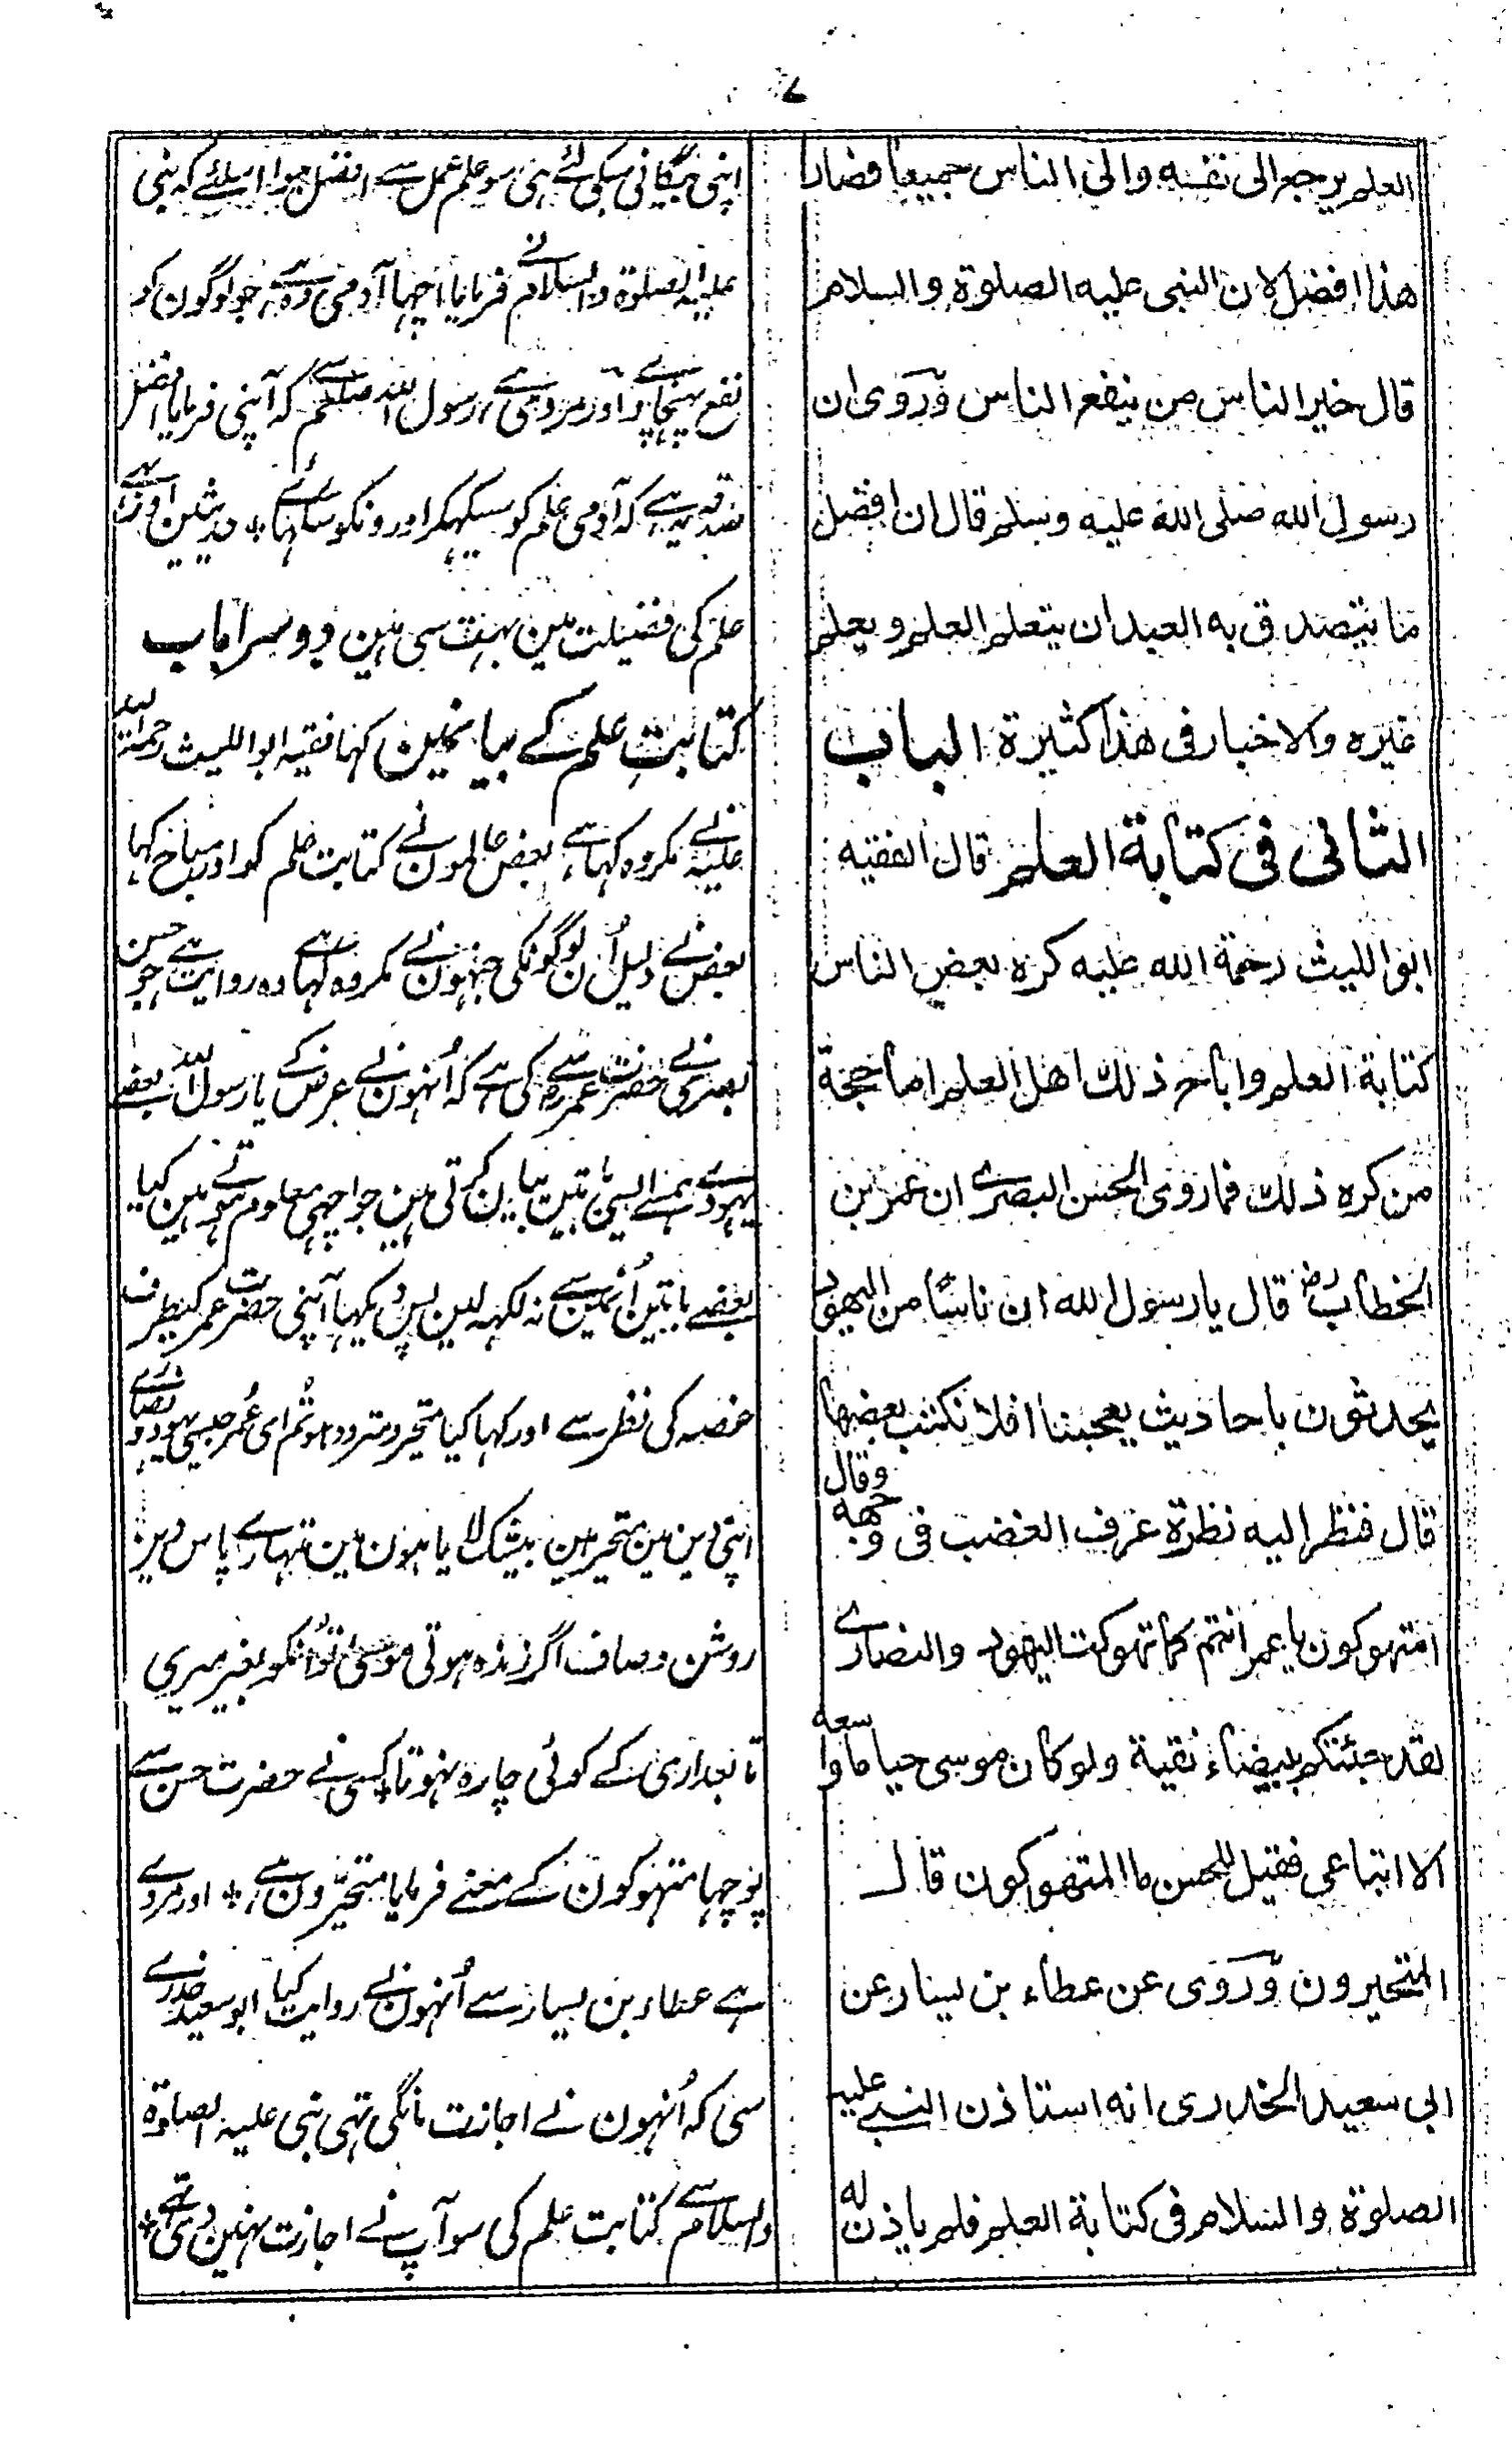 ۷
العلم يرجع الى نفسه والى الناس جميعا فصار
هذا افضل لان النبى عليه الصلوة والسلام
قال خير الناس من ينفع الناس وروى ان
رسول الله صلى الله عليه وسلم قال ان افضل
ما يتصدق به العبد ان يتعلم العلم و يعلم
غيره والاخبار فى هذا كثيرة الباب
الثانى فى كتابة العلم قال الفقيه
ابو الليث رحمة الله عليه كره بعض الناس
كتابة العلم واباح ذلك اهل العلم اما حجة
من كره ذلك فما روى الحسن البصرى ان عمر بن
الخطاب رض قال يا رسول الله ان ناسًا من اليهود
يحدثون باحاديث يعجبنا افلا نكتب بعضها
قال فنظر اليه نظرة عرف الغضب فى وجهه وقال
امتهوكون يا عمر انتم كما تهوكت اليهود والنصارى
لقد جئتكم ببيضاء نقية ولو كان موسى حيا ما وسعه
الا اتباعى فقيل للحسن ما المتهوكون قال
المتحيرون وروى عن عطاء بن يسار عن
ابى سعيد الخدرى انه استاذن النبى عليه
الصلوة والسلام فى كتابة العلم فلم ياذن له
اپنی یگانی سیکی لئے ہی سو علم عمل سے افضل ہوا اسلئے کہ نبی
علیہ الصلوة والسلام نے فرمایا اچہا آدمی وہ ہے جو لوگون کو
نفع پہنچاوے اور مروی ہے رسول اللہ صلعم سے کہ آپنی فرمایا افضل
صدقہ یہ ہے کہ آدمی علم کو سیکہکر اورونکو سکہائے * حدیثین اور
علم کی فضیلت مین بہت سی ہین دوسرا باب
کتابتِ علم کے بیانمین کہا فقیہ ابو اللیث رحمة اللہ
علیہ نے مکروہ کہا ہے بعض عالمون نے کتابت علم کو اور مباح کہا
بعض نے دلیل اُن لوگونکی جنہون نے مکروہ کہا ہے وہ روایت ہے جو حسن
بصری نے حضرت عمر سے کی ہے کہ اُنہون نے عرض کے یا رسول اللہ بعضے
یہودے ہمسے ایسی باتین بیان کرتی ہین جو اچہی معلوم ہوتے ہین کیا
بعضے باتین اُنمین سے نہ لکہہ لین پس دیکہا آپنی حضرت عمر کیطرف
غصہ کی نظر سے اور کہا کیا متحیر و متردد ہو تُم ای عُمر جیسی یہود و نصارے
اپنی دین مین متحیر ہین بیشک لایا ہون مین تمہارے پاس دین
روشن و صاف اگر زندہ ہوتی موسیٰ تو اُنکو بغیر میری
تابعداری کے کوئی چارہ نہوتا * کسی نے حضرت حسن سے
پوچہا متہوکون کے معنے فرمایا متحیّرون ہے * اور مروے
ہے عطاء بن یسار سے اُنہون نے روایت کیا ابو سعید خدرے
سی کہ اُنہون نے اجازت مانگی تہی نبی علیہ الصلوة
والسلام سے کتابت علم کی سو آپ نے اجازت نہین دی تہے *